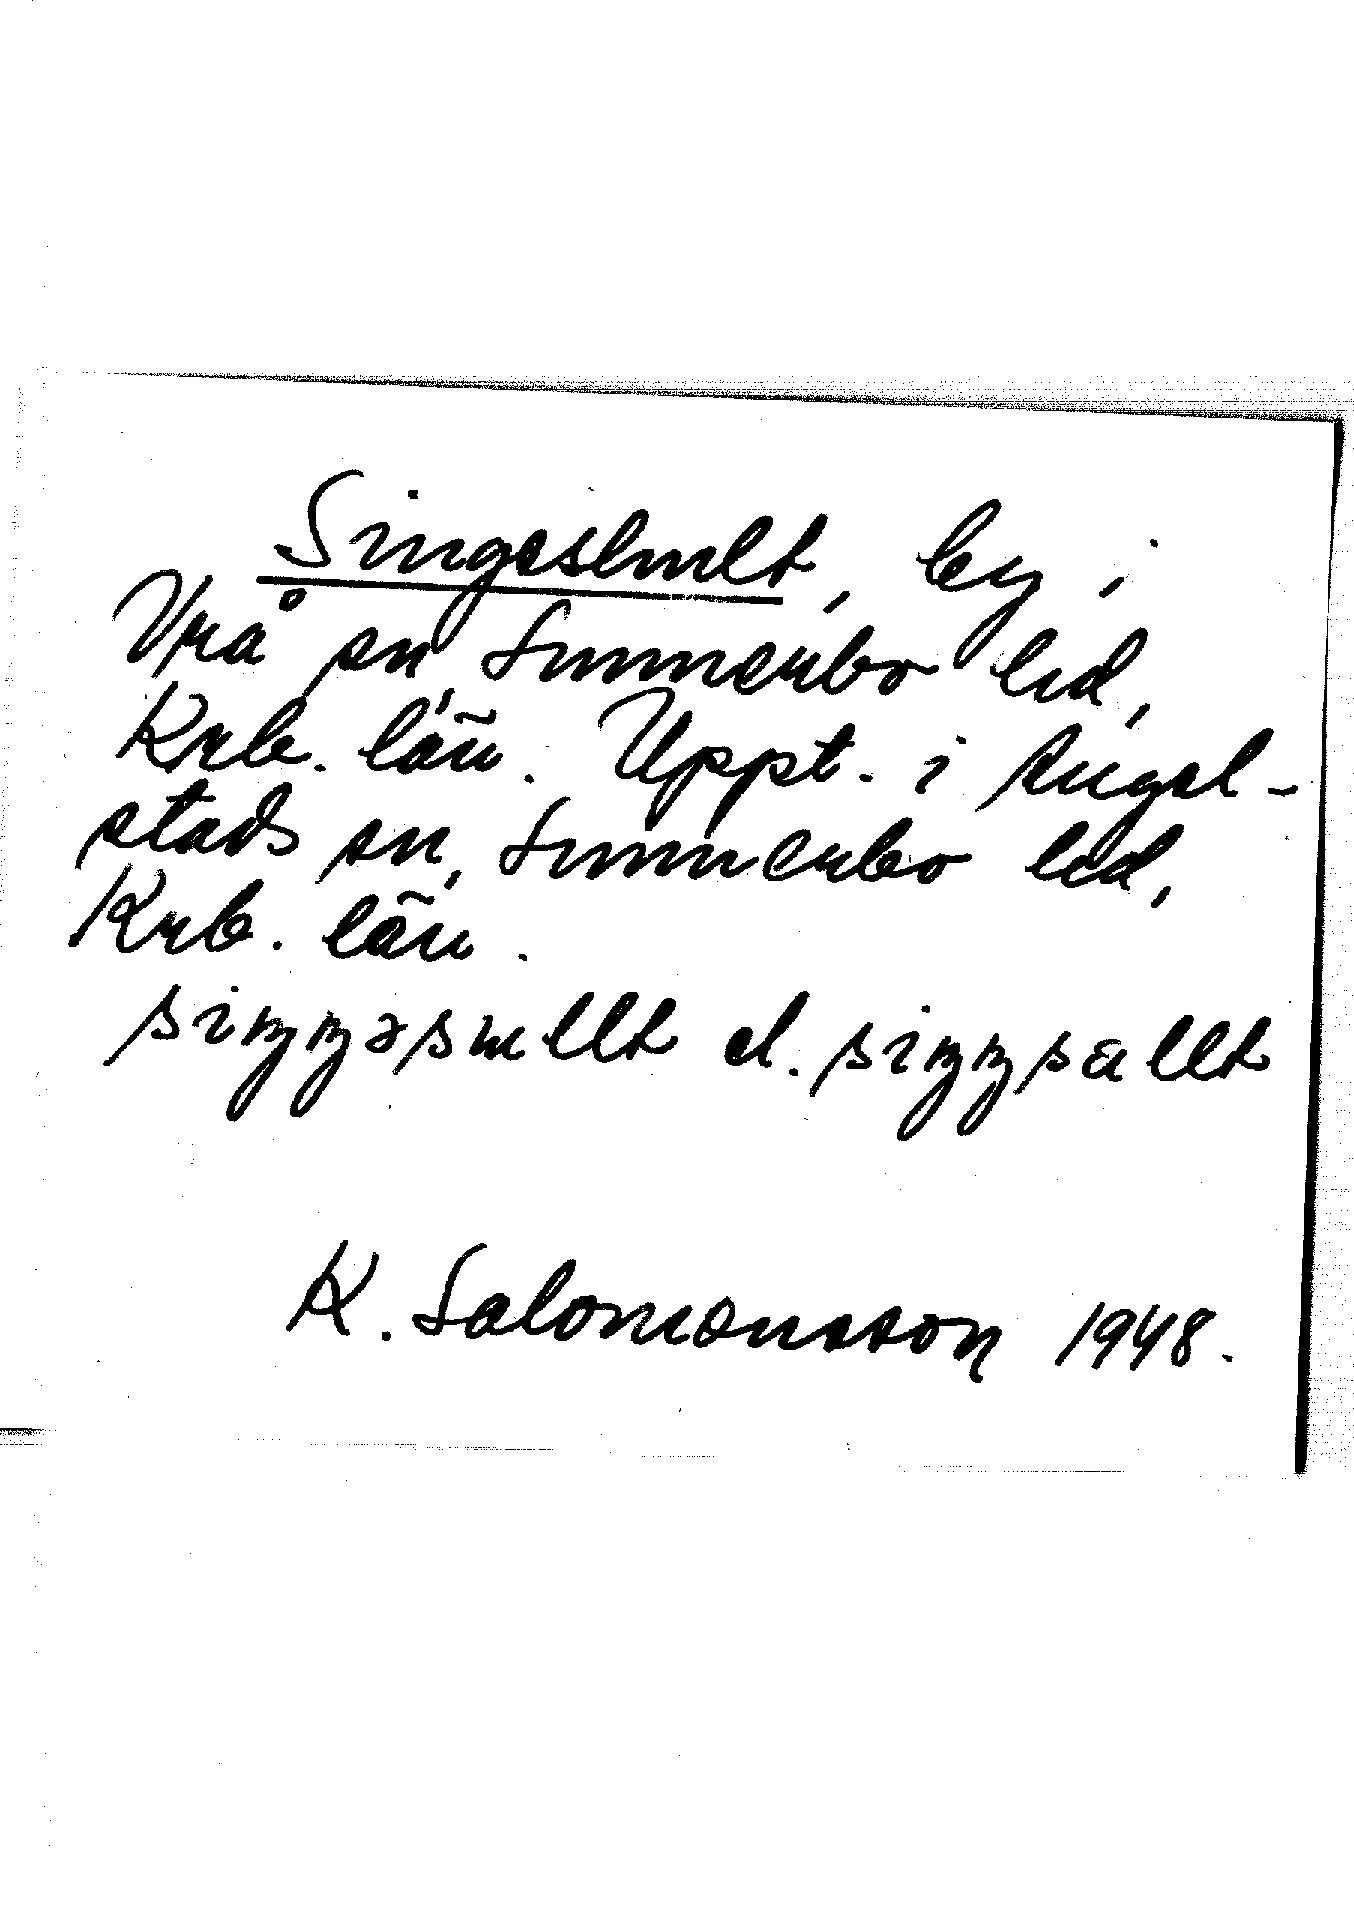 Singeshult, by i
Vrå sn, Sunnerbo hd,
Krb. län. Uppt. i Angel-
stads sn, Sunnerbo hd,
Krb. län.
siŋŋəsɯllt el. siŋŋsallt
K. Salomonsson 1948.